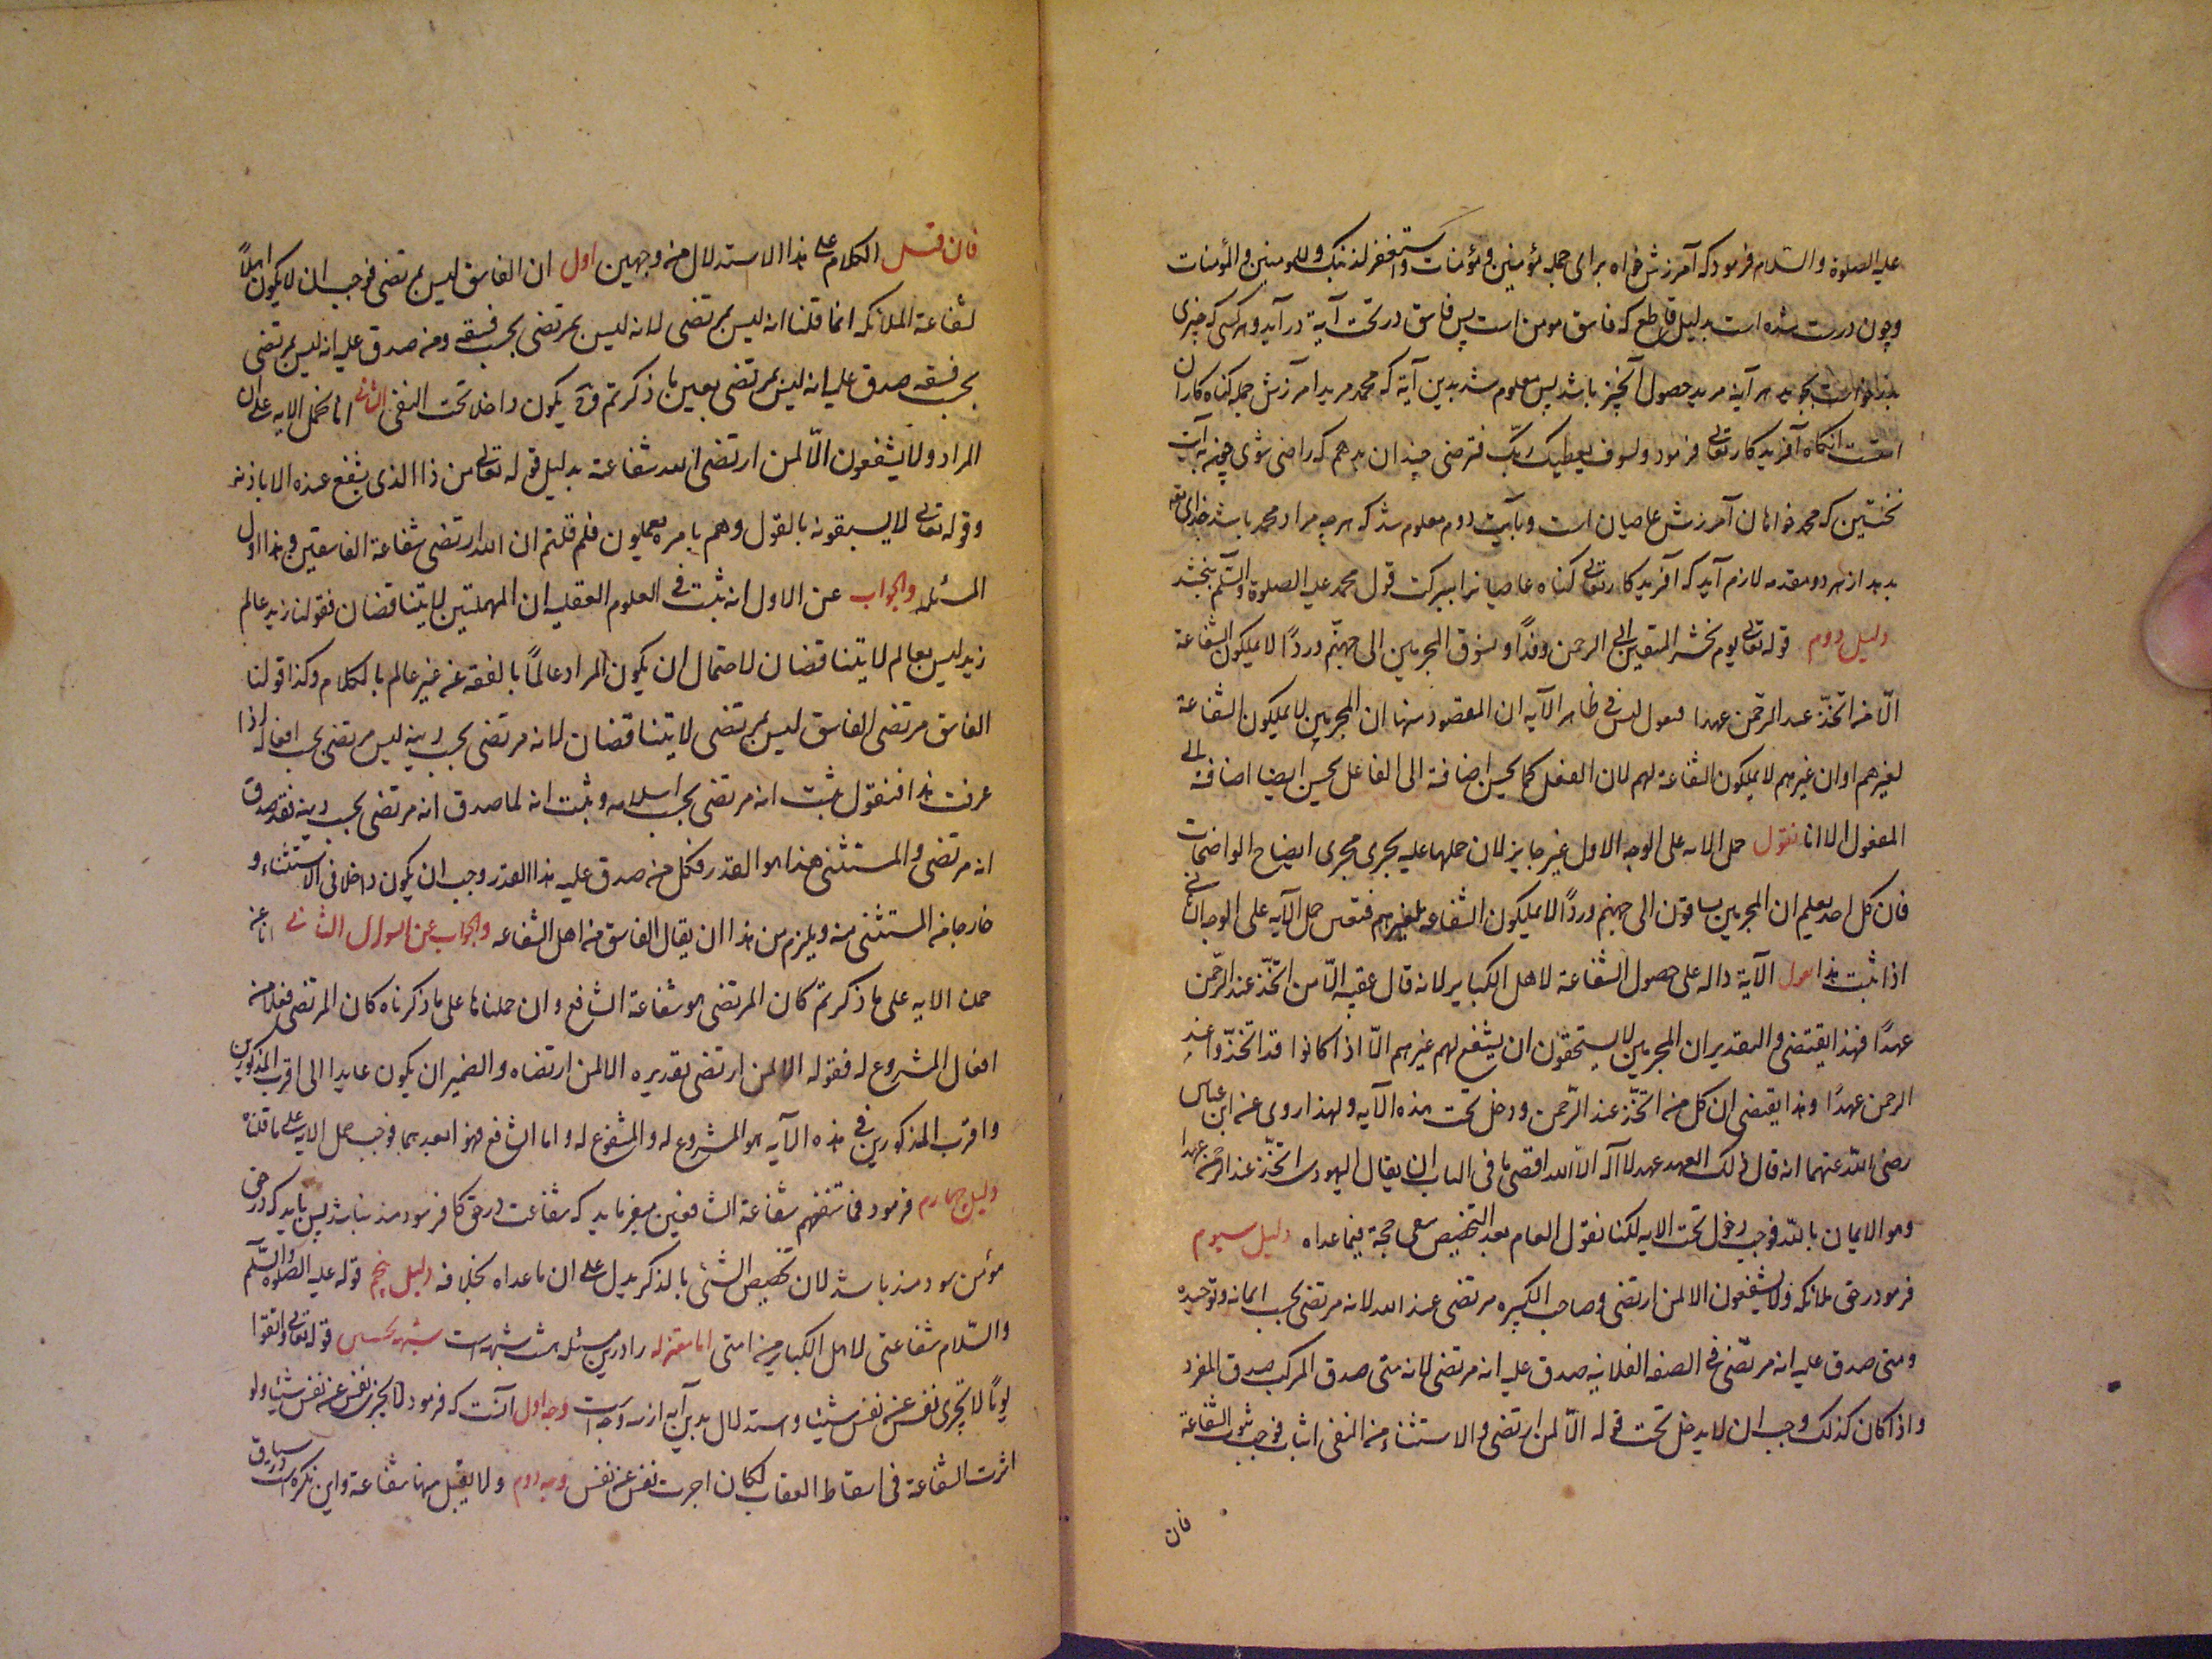 علیه الصلوة والسلام فرمود که آمرزش خواه برای جمله مؤمنین ومؤمنات واستغفر لذنبک وللمومنین والمؤمنات
وچون درست شده است بدلیل قاطع که فاسق مومن است پس فاسق در تحت آیة در آید و هر کسی که چیزی
هر آینه مرید حصول آنچیز باشد پس معلوم شد بدین آیة که محمد مرید آمرزش جمله کناه کاران
امتست انکاه آفریدکار تعالی فرمود ولسوف یعطیک ربک فترضی چندان بدهم که راضی شوی چون بآیت
نخستین که محمد خواهان آمرزش عاصیان است وبآیت دوم معلوم شد که هرچه مراد محمد باشد خدای تعالی
بدهد از هر دو مقدمه لازم آید که آفریدکار تعالی کناه عاصیانرا ببرکت قول محمد علیه الصلوة والسلم ببخشد
دلیل دوم قوله تعالی یوم نحشر المتقین الی الرحمن وفدًا ونسوق المجرمین الی جهنم وردًا لا یملکون الشفاعة
الّا من اتخذ عند الرحمن عهدا فنقول لیس فی ظاهر الآیه ان المقصود منها ان المجرمین لا یملکون الشفاعة
لغیرهم او ان غیرهم لا یملکون الشفاعة لهم لان الفعل کما یحسن اضافة الی الفاعل یحسن ایضا اضافته الی
المفعول الا انا نقول حمل الایه علی الوجه الاول غیر جایز لان حملها علیه یجری مجری ایضاح الواضحات
فان کل احد یعلم ان المجرمین یساقون الی جهنم وردًا لا یملکون الشفاعه لغیرهم فتعین حمل الآیه علی الوجه الثانی
اذا ثبت هذا فنقول الآیة داله علی حصول الشفاعة لاهل الکبایر لانه قال عقیبه الّا من اتخذ عند الرحمن
عهدًا فهذا یقتضی والتقدیر ان المجرمین لا یستحقون ان یشفع لهم غیرهم الّا اذا کانوا قد اتخذوا عند
الرحمن عهدًا وهذا یقتضی ان کل من اتخذ عند الرحمن ودخل تحت هذه الآیه ولهذا روی عن ابن عباس
رضی الله عنهما انه قال ذلک العهد عهد لا اله الا الله اقصی ما فی الباب ان یقال الیهودی اتخذ عند الرحمن عهدا
وهو الایمان بالله فوجب دخوله تحت الایه لکنا نقول العام بعد التخصیص یبقی حجة فیما عداه دلیل سیوم
فرمود در حق ملائکه ولا یشفعون الا لمن ارتضی وصاحب الکبیره مرتضی عند الله لانه مرتضی بحسب ایمانه وتوحیده
ومتی صدق علیه انه مرتضی فی الصفه الفلانیه صدق علیه انه مرتضی لانه متی صدق المرکب صدق المفرد
واذا کان کذلک وجب ان لا یدخل تحت قوله الّا لمن ارتضی والاستثناء من النفی اثبات فوجب ثبوت الشفاعة
فان
فان قیل الکلام علی هذا الاستدلال من وجهین اول ان الفاسق لیس بمرتضی فوجب ان لا یکون اهلاً
لشفاعة الملائکه انما قلنا انه لیس بمرتضی لانه لیس بمرتضی بحسب فسقه ومن صدق علیه انه لیس بمرتضی
بحسب فسقه صدق علیه انه لیس بمرتضی بعین ما ذکرتم یکون داخلا تحت النفی الثانی انا نحمل الایه علی ان
المراد ولا یشفعون الّا لمن ارتضی الله شفاعة بدلیل قوله تعالی من ذا الذی یشفع عنده الا باذنه
وقوله تعالی لا یسبقونه بالقول وهم بامره یعملون فلم قلتم ان الله ارتضی شفاعة الفاسقین وهذا اول
المسئله والجواب عن الاول انه ثبت فی العلوم العقلیه ان المهملتین لا یتناقضان فقولنا زید عالم
زید لیس بعالم لا یتناقضان لاحتمال ان یکون المراد عالمًا بالفقه غیر عالم بالکلام وکذا قولنا
الفاسق مرتضی الفاسق لیس بمرتضی لا یتناقضان لانه مرتضی بحسب دینه لیس مرتضی بحسب افعاله اذا
عرفت هذا فنقول ثبت انه مرتضی بحسب اسلامه وثبت انه لما صدق انه مرتضی بحسب دینه فقد صدق
انه مرتضی والمستثنی هذا هو القدر فکل من صدق علیه هذا القدر وجب ان یکون داخلا فی الاستثناء و
خارجا من المستثنی منه ویلزم من هذا ان یقال الفاسق من اهل الشفاعه والجواب عن السوال الثانی انا عن
حمل الایه علی ما ذکرتم کان المرتضی هو شفاعة الشافع وان حملناها علی ما ذکرناه کان المرتضی فعلا من
افعال المشروع له فقوله الا لمن ارتضی تقدیره الا لمن ارتضاه والضمیر ان یکون عایدا الی اقرب المذکورین
واقرب المذکورین فی هذه الآیه هو المشروع له والمشفوع له واما الشافع فهو ابعدهما فوجب حمل الایه علی ما قلنا
دلیل چهارم فرمود فما تنفعهم شفاعة الشافعین میفرماید که شفاعت در حق کافر سودمند نباشد پس باید که در حق
مؤمن سودمند باشد لان تخصیص الشئ بالذکر یدل علی ان ما عداه بخلافه دلیل پنجم قوله علیه الصلوة والسلم
والسّلام شفاعتی لاهل الکبایر من امتی اما معتزله را درین مسئله هشت شبهه است شبهه نخستین قوله تعالی واتقوا
یومًا لا تجزی نفس عن نفس شیئا واستدلال بدین آیه از سه وجه است وجه اول آنست که فرمود لا تجزی نفس عن نفس شیئا ولو
اثرت الشفاعة فی اسقاط العقاب لکان اجزت نفس عن نفس وجه دوم ولا یقبل منها شفاعة واین نکره است در سیاق